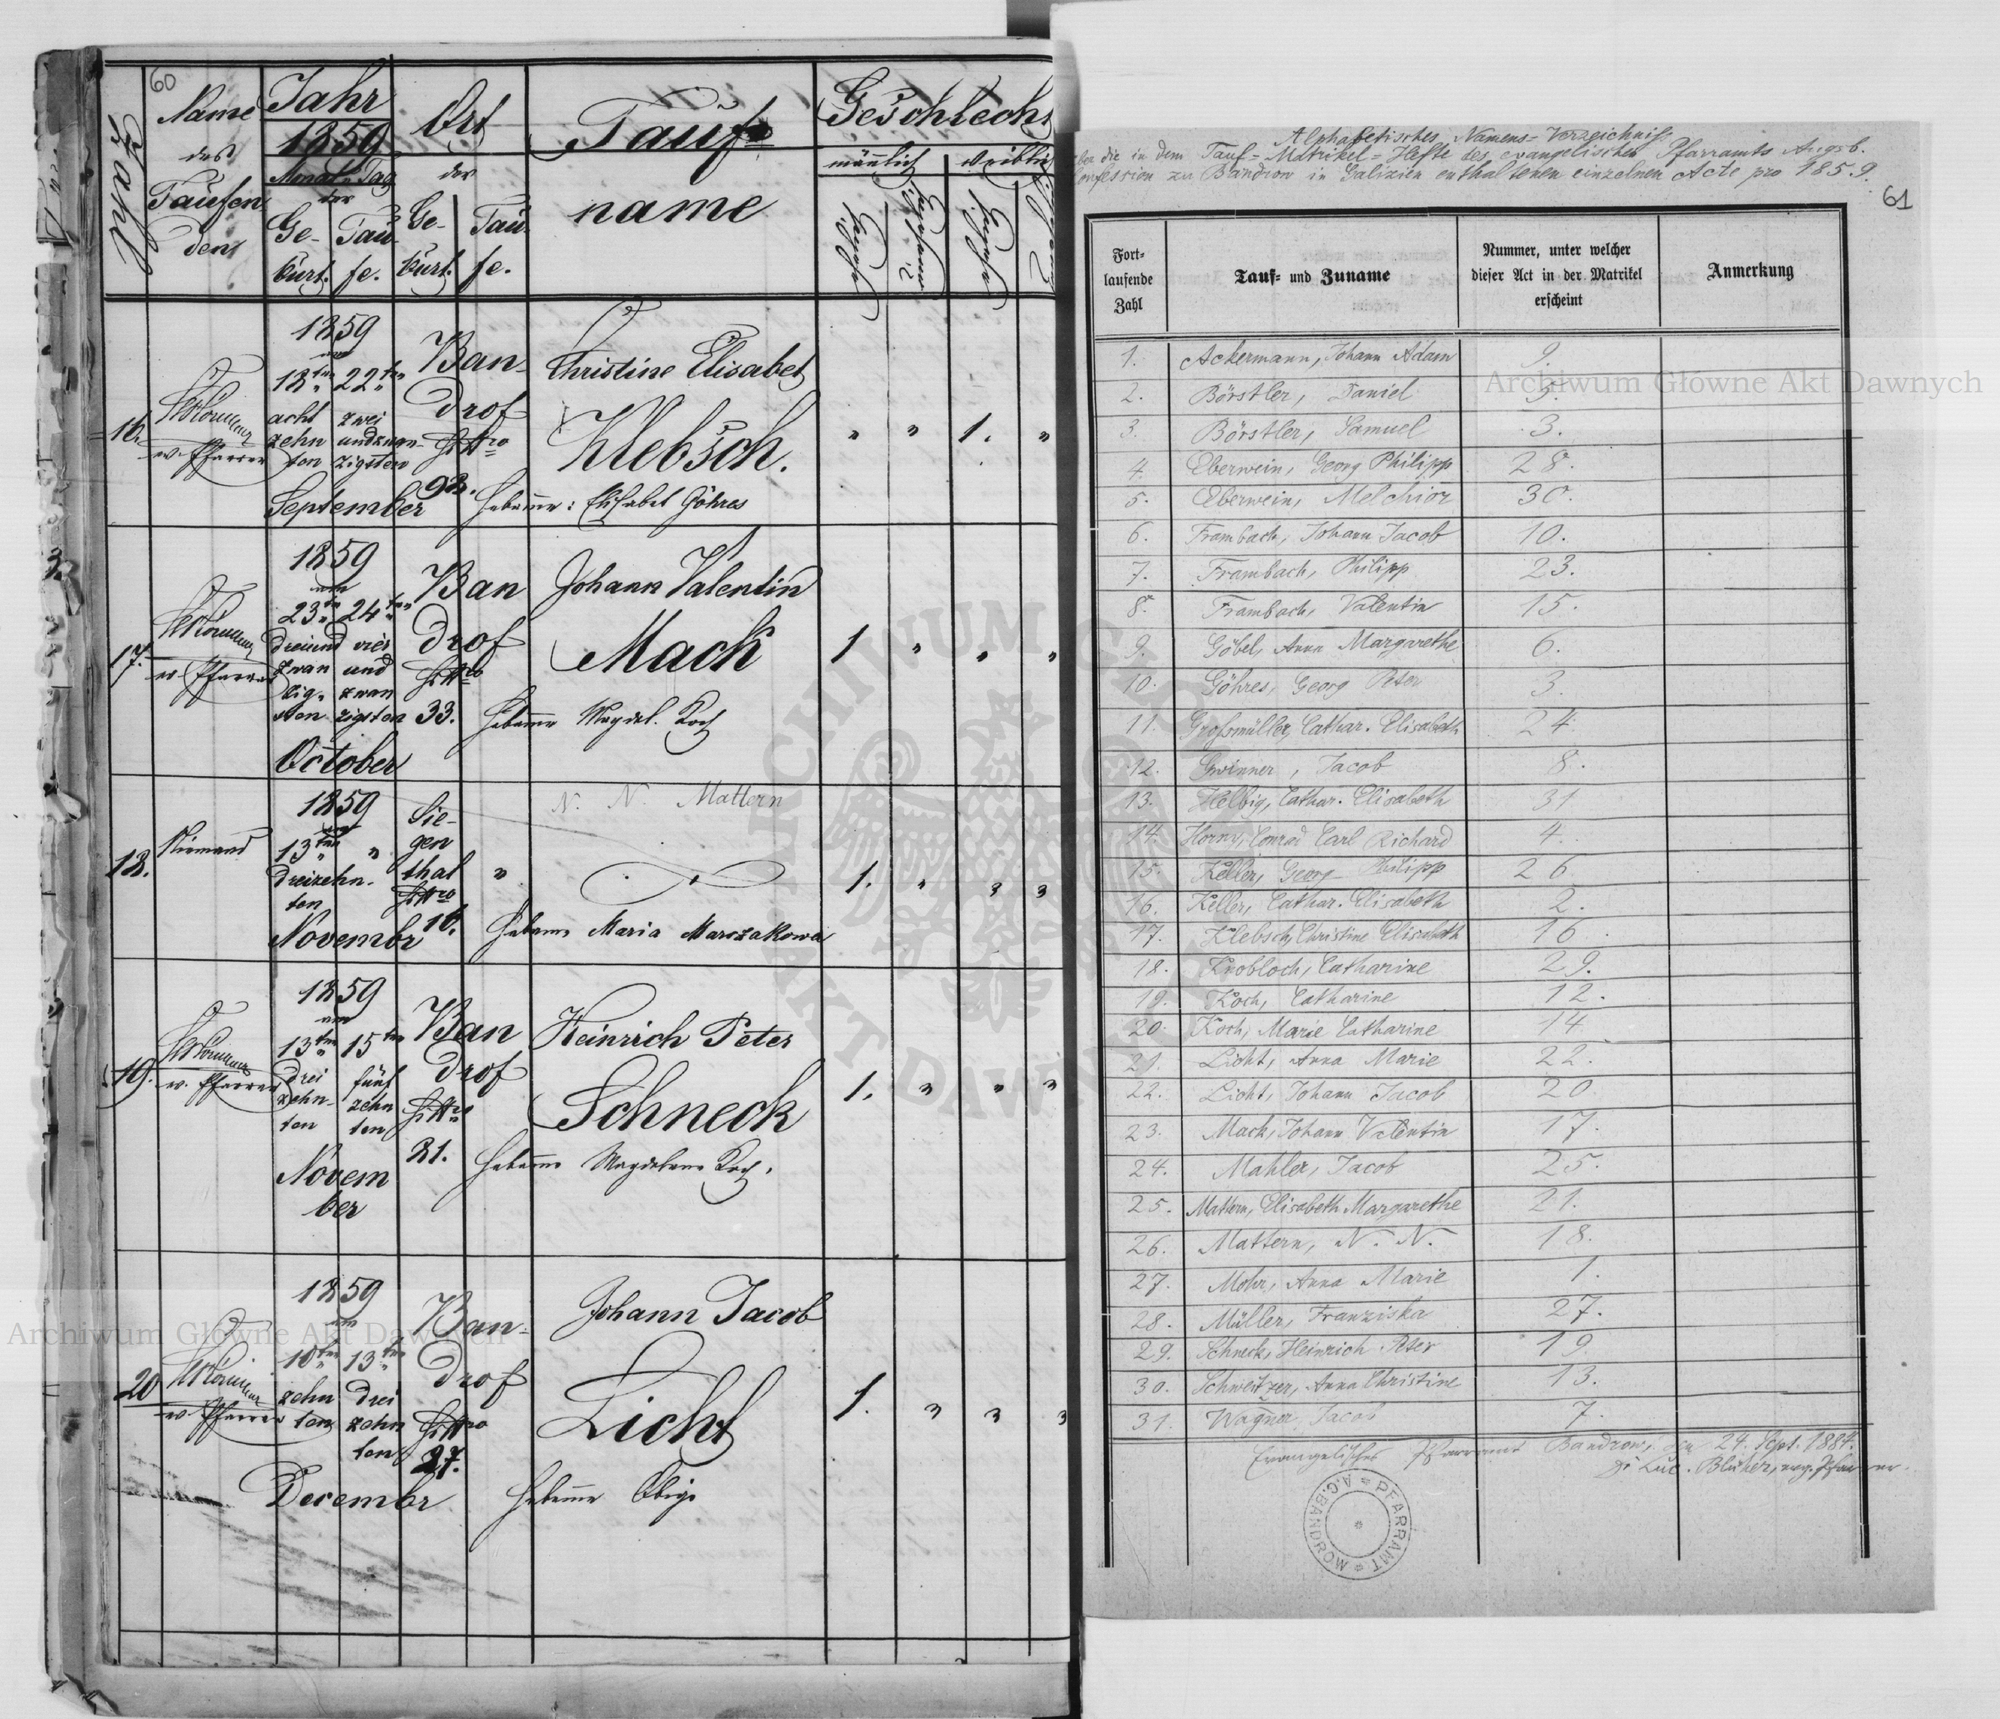 60
Zahl
Name
des
Taufen
den
Jahr
1859
Monat u Tag
der
Ge-
burt.
Tau-
fe.
Ort
der
Ge-
burt.
Tau-
fe.
Tauf-
name
Geschlecht
männlich
weiblich
16.
w. Pfarrer
1859
am
18ten 22ten
acht zwei
zehn undzwan-
ten zigsten
September
Ban-
drof
Httro
98.
Christine Elisabet
Klebsch.
Hebamme: Elisabet Göhres
" " 1. "
17.
w Pfarrer
1859
am
23ten 24ten
dreiund vier
zwan und
zig- zwan
sten zigsten
October
Ban
drof
Httro
33.
Johann Valentin
Mack
Hebamme Magdal. Koch
1 " " "
18.
Niemand
1859
am
13ten "
dreizehn-
ten
Novembr
Sie-
gen
thal "
Httro
16.
N. N. Mattern
Hebamme Maria Marszakowa
1. " " "
19.
w. Pfarrer
1859
am
13ten 15ten
drei fünf
zehn- zehn
ten ten
Novem
ber
Ban
drof
Httro
21.
Heinrich Peter
Schneck
Hebamme Magdalena Koch.
1. " " "
20
w Pfarrer
1859
am
10ten 13ten
zehn drei
ten zehn
ten
Decembr
Ban-
drof
Httro
27.
Johann Jacob
Licht
Hebamme Obige
1. " " "
Alphabetisches Namens-Verzeichniß
über die in dem Tauf-Matrikel-Hefte des evangelischen Pfarramts Augsb.
Confession zu Bandrow in Galizien enthaltenen einzelnen Acte pro 1859.
61
Fort-
laufende
Zahl
Tauf- und Zuname
Nummer, unter welcher
dieser Act in der Matrikel
erscheint
Anmerkung
1. Ackermann, Johann Adam 9.
2. Börstler, Daniel 5.
3. Börstler, Samuel 3.
4. Eberwein, Georg Philipp 28.
5. Eberwein, Melchior 30.
6. Frambach, Johann Jacob 10.
7. Frambach, Philipp 23.
8. Frambach, Valentin 15.
9. Göbel, Anna Margarethe 6.
10. Göhres, Georg Peter 3.
11. Großmüller, Cathar. Elisabeth 24.
12. Gwinner, Jacob 8.
13. Helbig, Cathar. Elisabeth 31
14. Horny, Conrad Carl Richard 4.
15. Keller, Georg Philipp 26.
16. Keller, Cathar. Elisabeth 2.
17. Klebsch, Christine Elisabeth 16.
18. Knobloch, Catharine 29.
19. Koch, Catharine 12.
20. Koch, Marie Catharine 14
21. Licht, Anna Marie 22.
22. Licht, Johann Jacob 20
23. Mack, Johann Valentin 17.
24. Mahler, Jacob 25.
25. Mattern, Elisabeth Margarethe 21.
26. Mattern, N. N. 18.
27. Mohr, Anna Marie 1.
28. Müller, Franziska 27.
29. Schneck, Heinrich Peter 19.
30. Schweitzer, Anna Christine 13.
31. Wagner, Jacob 7.
Evangelisches Pfarramt Bandrow, den 24. Sept. 1884.
Blüher, evg. Pfarrer.
PFARRAMT * A.C. BANDROW *
Archiwum Główne Akt Dawnych
Archiwum Główne Akt Dawnych
ARCHIWUM GŁÓWNE AKT DAWNYCH